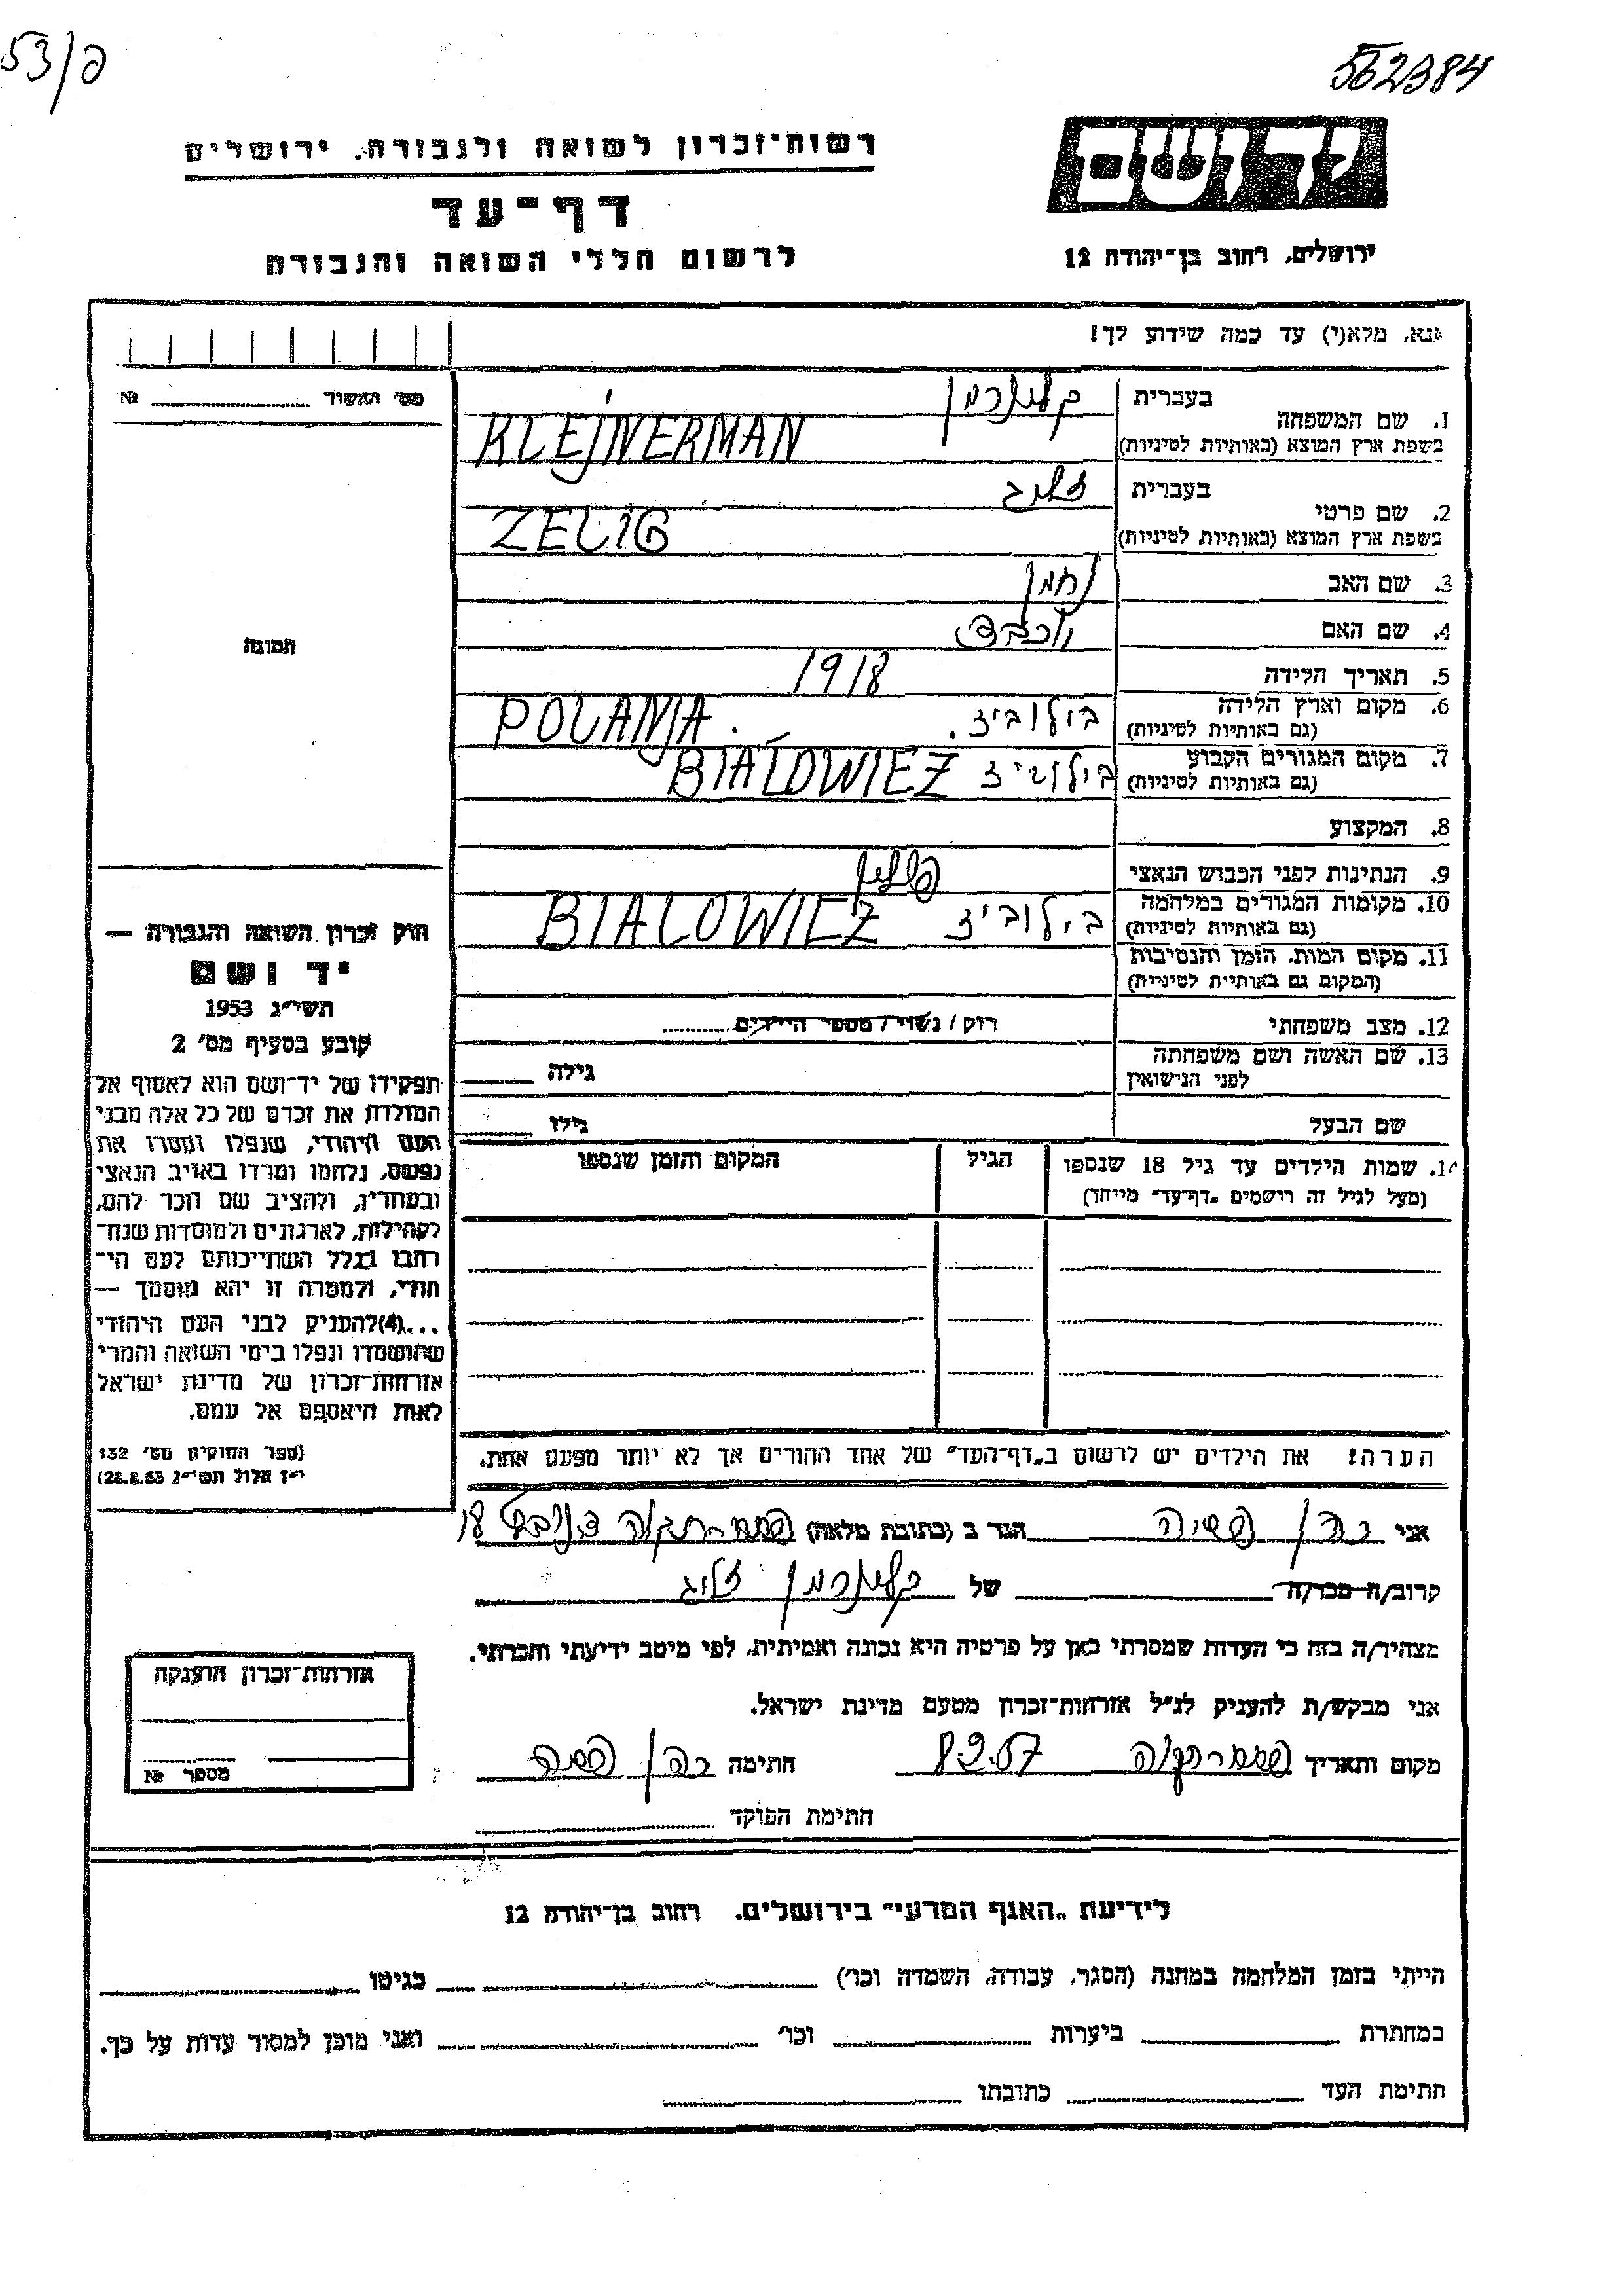 53/פ
562384
יד ושם
רשות־זכרון לשואה ולגבורה, ירושלים
דף־עד
לרשום חללי השואה והגבורה
ירושלים, רחוב בן־יהודה 12
אנא, מלא(י) עד כמה שידוע לך!
מס' האשור №
תמונה
1. שם המשפחה
בעברית קלינרמן
בשפת ארץ המוצא (באותיות לטיניות) KLEJNERMAN
2. שם פרטי
בעברית זליג
בשפת ארץ המוצא (באותיות לטיניות) ZELIG
3. שם האב נחמן
4. שם האם יוכבד
5. תאריך הלידה 1918
6. מקום וארץ הלידה בילוביז. POLANJA.
(גם באותיות לטיניות)
7. מקום המגורים הקבוע בילוביז BIALOWIEZ
(גם באותיות לטיניות)
8. המקצוע
9. הנתינות לפני הכבוש הנאצי פולין
10. מקומות המגורים במלחמה בילוביז BIALOWIEZ
(גם באותיות לטיניות)
11. מקום המות, הזמן והנסיבות
(המקום גם באותיות לטיניות)
12. מצב משפחתי רוק / נשוי / מספר הילדים
13. שם האשה ושם משפחתה גילה
לפני הנישואין
שם הבעל גילו
14. שמות הילדים עד גיל 18 שנספו הגיל המקום והזמן שנספו
(מעל לגיל זה רישמים "דף־עד" מייחד)
הערה! את הילדים יש לרשום ב"דף־העד" של אחד ההורים אך לא יותר מפעם אחת.
חוק זכרון השואה והגבורה —
יד ושם
תשי"ג 1953
קובע בסעיף מס' 2
תפקידו של יד־ושם הוא לאסוף אל
המולדת את זכרם של כל אלה מבני
העם היהודי, שנפלו ומסרו את
נפשם, נלחמו ומרדו באויב הנאצי
ובעוזריו, ולהציב שם וזכר להם,
לקהילות, לארגונים ולמוסדות שנח־
רבו בגלל השתייכותם לעם הי־
הודי, ולמטרה זו יהא מוסמך —
...(4)להעניק לבני העם היהודי
שהושמדו ונפלו בימי השואה והמרי
אזרחות־זכרון של מדינת ישראל
לאות היאספם אל עמם.
(ספר החוקים מס' 132
י"ז אלול תשי"ג 28.8.53)
אני כהן פסיה הגר ב (כתובת מלאה) פתח-תקוה 18
קרוב/ה מכר/ה של קלינרמן זליג
מצהיר/ה בזה כי העדות שמסרתי כאן על פרטיה היא נכונה ואמיתית, לפי מיטב ידיעתי והכרתי.
אני מבקש/ת להעניק לנ"ל אזרחות־זכרון מטעם מדינת ישראל.
מקום ותאריך פתח-תקוה 8.2.57 חתימה כהן פסיה
חתימת הפוקד
אזרחות־זכרון הוענקה
מספר №
לידיעת "האגף המדעי" בירושלים, רחוב בן־יהודה 12
הייתי בזמן המלחמה במחנה (הסגר, עבודה, השמדה וכו') בגיטו
במחתרת ביערות וכו' ואני מוכן למסור עדות על כך.
חתימת העד כתובתו